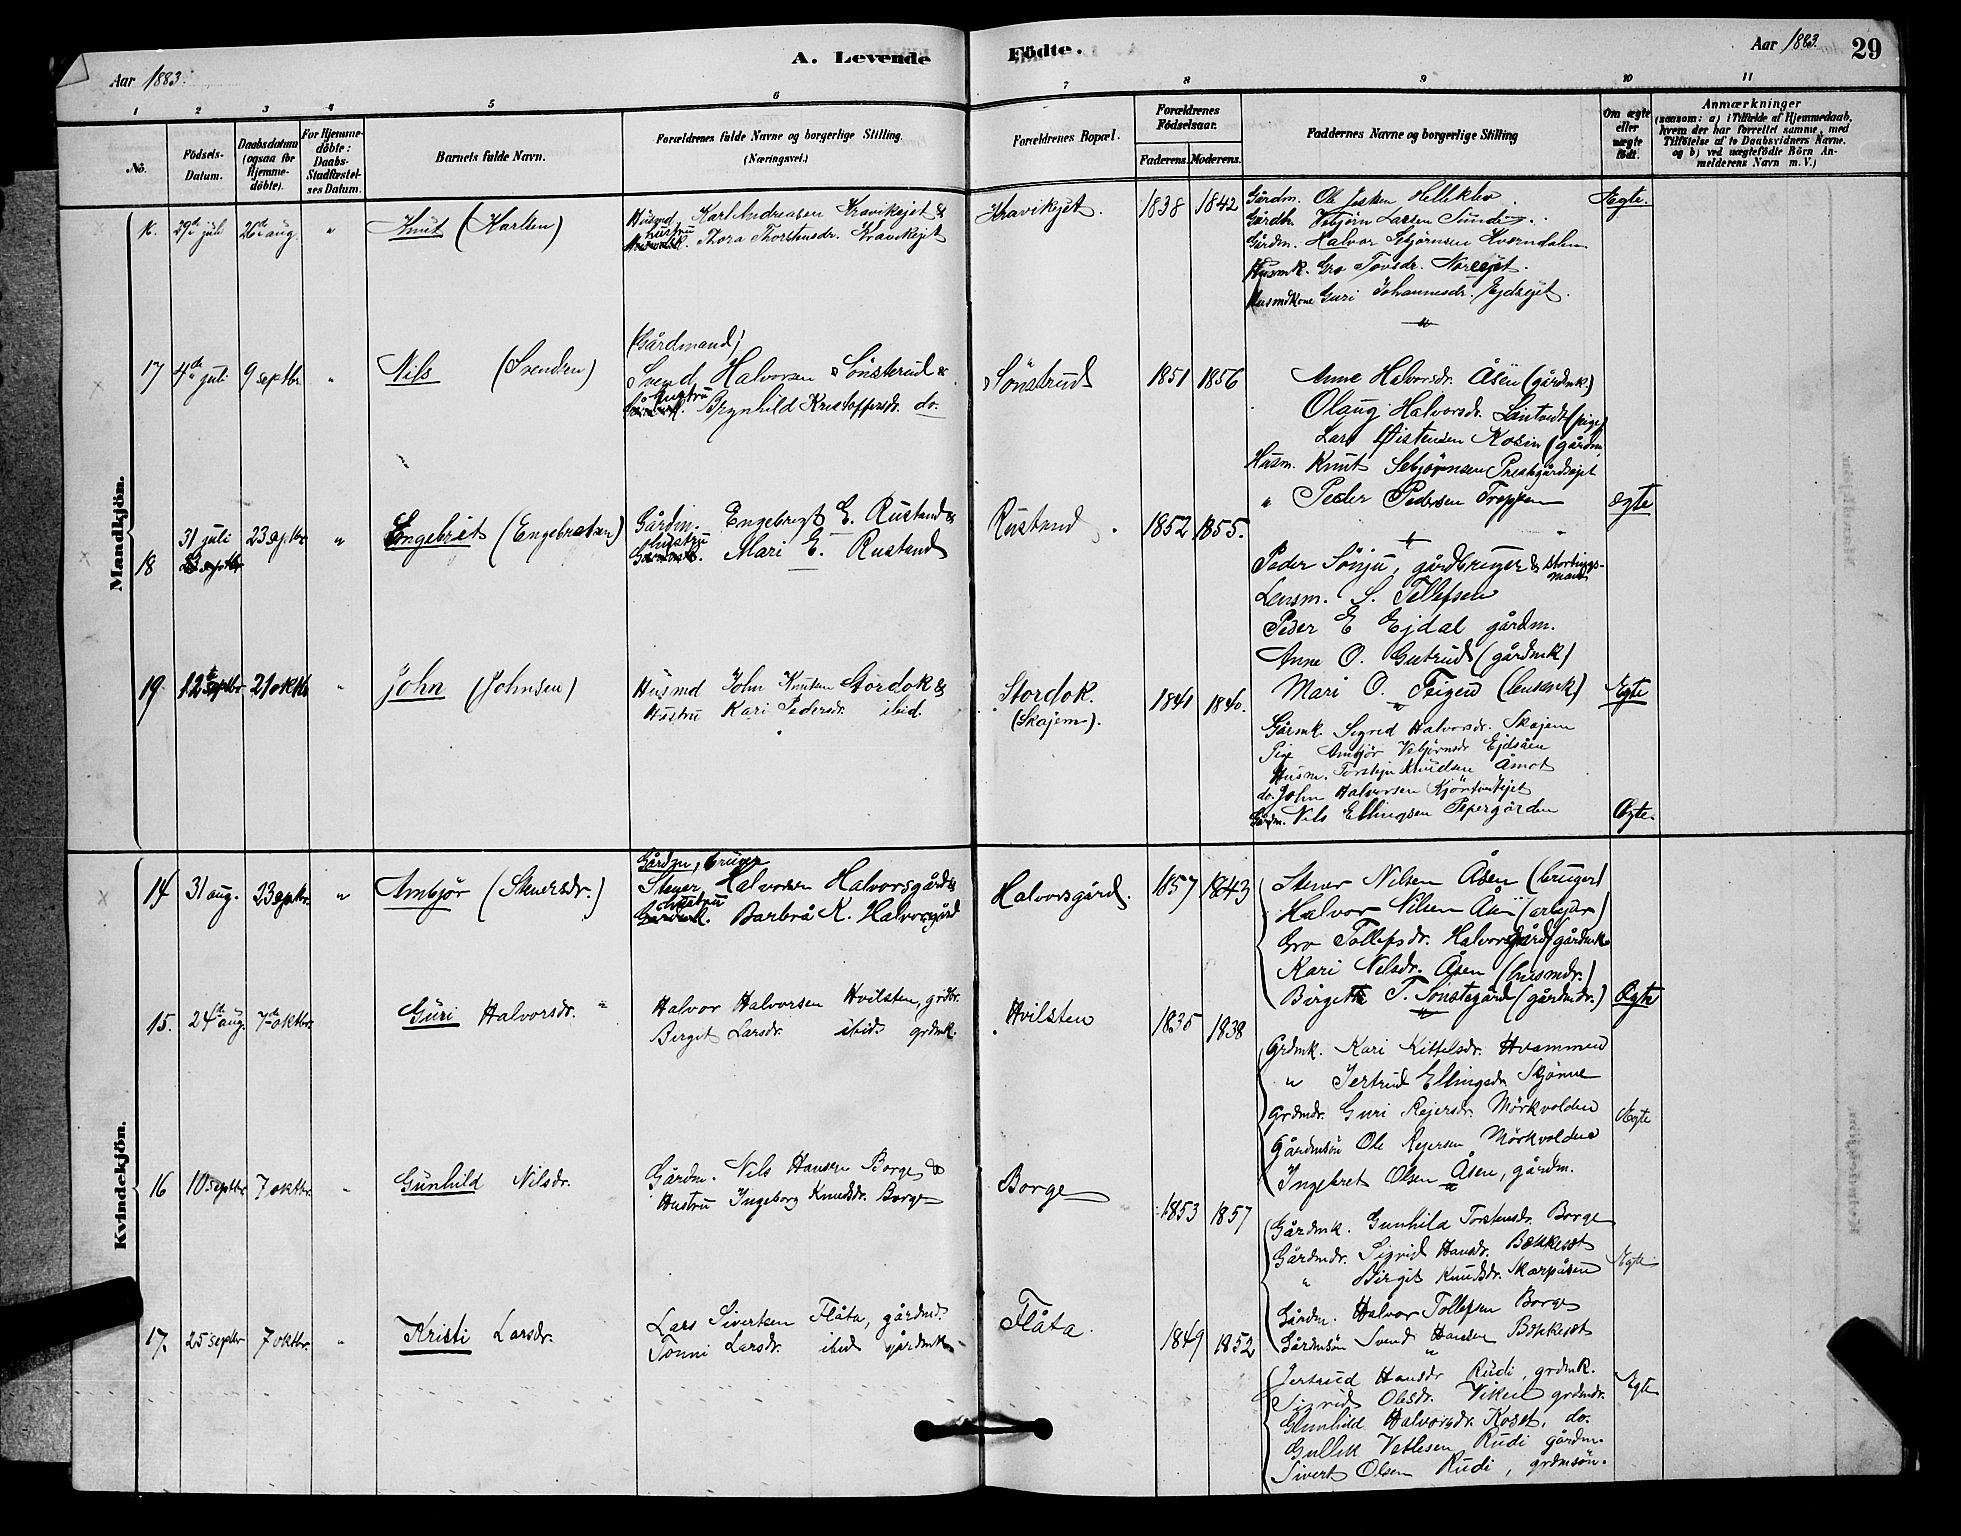 A. Levende Födte.
Aar 1883.
Aar 1883.
29
1 2 3 4 5 6 7 8 9 10 11
No.
Födsels-Datum.
Daabsdatum (ogsaa for Hjemmedöbte).
For Hjemmedöbte: Daabs-Stadfæstelses Datum.
Barnets fulde Navn.
Forældrenes fulde Navne og borgerlige Stilling (Næringsvei.)
Forældrenes Bopæl.
Forældrenes Födselsaar.
Faderens. Moderens.
Faddernes Navne og borgerlige Stilling
Om ægte eller uægte födt.
Anmærkninger
(saasom: a) i Tilfælde af Hjemmedaab, hvem der har forrettet samme, med Tilföielse af to Daabsvidners Navne. og b) ved uægtefödte Börn Anmelderens Navn m. V.)
Mandkjön.
29de juli 26de aug. " Knut (Karlsen)
Husmd Karl Andreasen Kravikejet &
hustru Thora Thorstensdr. Kravikejet
Kravikejet. 1838 1842
Gårdm. Ole Helleklev
Gårdbr. Vebjörn Larsen
Gårdm. Halvor Sebjörnsen Kverndalen
Husmk. Gro Tovsdr.
Husmdkone Guri Johannesdr. Ejdsejet.
Ægte.
17 4de juli 9 septbr. " Nils (Svendsen)
(Gårdmand)
Svend Halvorsen Sönsterud &
hustru Brynhild Kristoffersdr. do.
Sönstrud 1851 1856
Anne Halvorsdr. Åsen (gårdmk.)
Olaug Halvorsdr. (pige)
Lars Øistensen (gårdm.
Husm. Knut Sebjörnsen Prestgårdsejet
" Peder Pedersen Troppen
ægte
18 31 juli 23 septbr " Engebrët (Engebretsen)
Gårdm. Engebregt E. Rustand &
hustru Mari E. Rustand
Rustand 1852 1855.
Peder Sönju, gårdbruger & storthingsmand
Lensm. S. Tollefsen
Peder E Ejdal gårdm.
Anne O. Gutrud (gårdmk)
Mari O. (lensmk)
Ægte
19. 12te septbr 21 oktb " John (Johnsen)
Husmd John Knutsen Stordok &
Hustru Kari Pedersdr. ibid.
Stordok. (Skajem). 1841 1840.
Gårmk. Sigrid Halvorsdr. Skajem
Pige Ambjör Vebjörnsdr Ejdsåen
Husm. Torstejn Knudsen Åmot
do. John Halvorsen
Gårdm. Nils Ellingsen Pepergården
Ægte.
Kvindekjön.
14 31 aug. 23 septbr. " Ambjör (Stenersdr.)
Gårdm, bruger
Stener Halvorsen Halvorsgård &
hustru Barbrå K. Halvorsgård
Halvorsgård. 1857 1843
Stener Nilsen Åsen (bruger)
Halvor Nilsen Åsen (arbejdr)
Gro Tollefsdr. Halvorsgård (gårdmk
Kari Nilsdr. Åsen (husmdr.)
Birgette T. Sönstegård (gårdmdr.)
Ægte
15. 24de aug. 7de oktbr. Guri Halvorsdr. "
Halvor Halvorsen Hvilsten, grdbr.
Birgit Larsdr. ibid. grdmk.
Hvilsten 1835 1838
Grdmk. Kari Kittelsdr. Hvammen
" Jertrud Ellingsdr Skjönne
grdmdr. Guri Rejersdr. Mörkvolden
Gårdmsön Ole Rejersen Mörkvolden
Ingebret Olsen Åsen, gårdm.
Ægte
16 10 septbr 7 oktbr. " Gunhild Nilsdr.
Gårdm. Nils Hansen Borge &
Hustru Ingeborg Knudsdr. Borge
Borge 1853 1857
Gårdmk. Gunhild Torstensdr. Borge
Gårdmdr. Sigrid Hansdr. Bækkesæt
" Birgit Knudsdr. Skarpåsen
Gårdm. Halvor Tollefsen Borge
Gårdmsön Svend Hansen Bækkesæt
Ægte
17. 25 septbr 7 oktbr. " Kristi Larsdr.
Lars Sivertsen Flåta, gårdmd.
Tonni Larsdr. ibid gårdmk.
Flåta. 1849 1852
Jertrud Hansdr Rudi, grdmk.
Sigrid Olesdr. Viken grdmdr.
Gunhild Halvorsdr. Koset, do.
Gullik Vetlesen Rudi gårdm.
Sivert Olsen Rudi, grdmsön.
Ægte